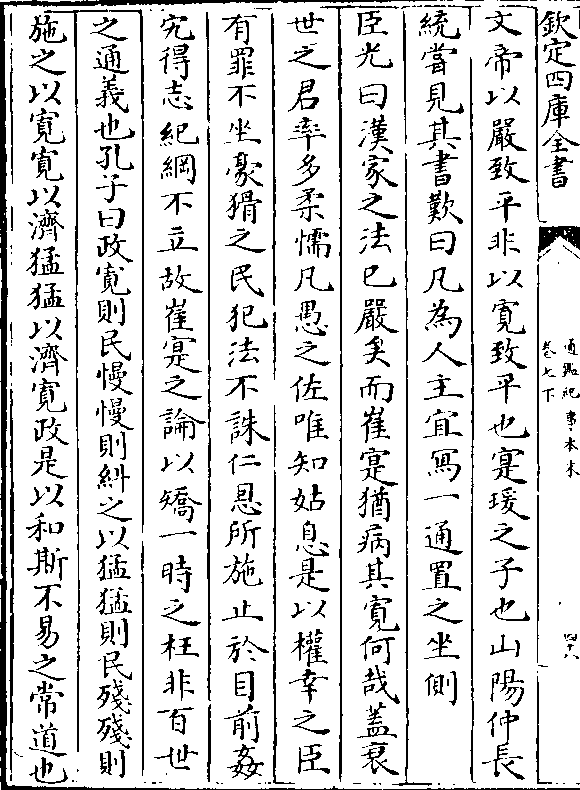 欽定四庫全書
通鑑紀事本末
卷七下
四十八
文帝以嚴致平非以寛致平也寔瑗之子也山陽仲長
統嘗見其書歎曰凡為人主宜寫一通置之坐側
臣光曰漢家之法已嚴矣而崔寔猶病其寛何哉蓋衰
世之君率多柔懦凡愚之佐唯知姑息是以權幸之臣
有罪不坐豪猾之民犯法不誅仁恩所施止於目前姦
宄得志紀綱不立故崔寔之論以矯一時之枉非百世
之通義也孔子曰政寛則民慢慢則糾之以猛猛則民殘殘則
施之以寛寛以濟猛猛以濟寛政是以和斯不易之常道也